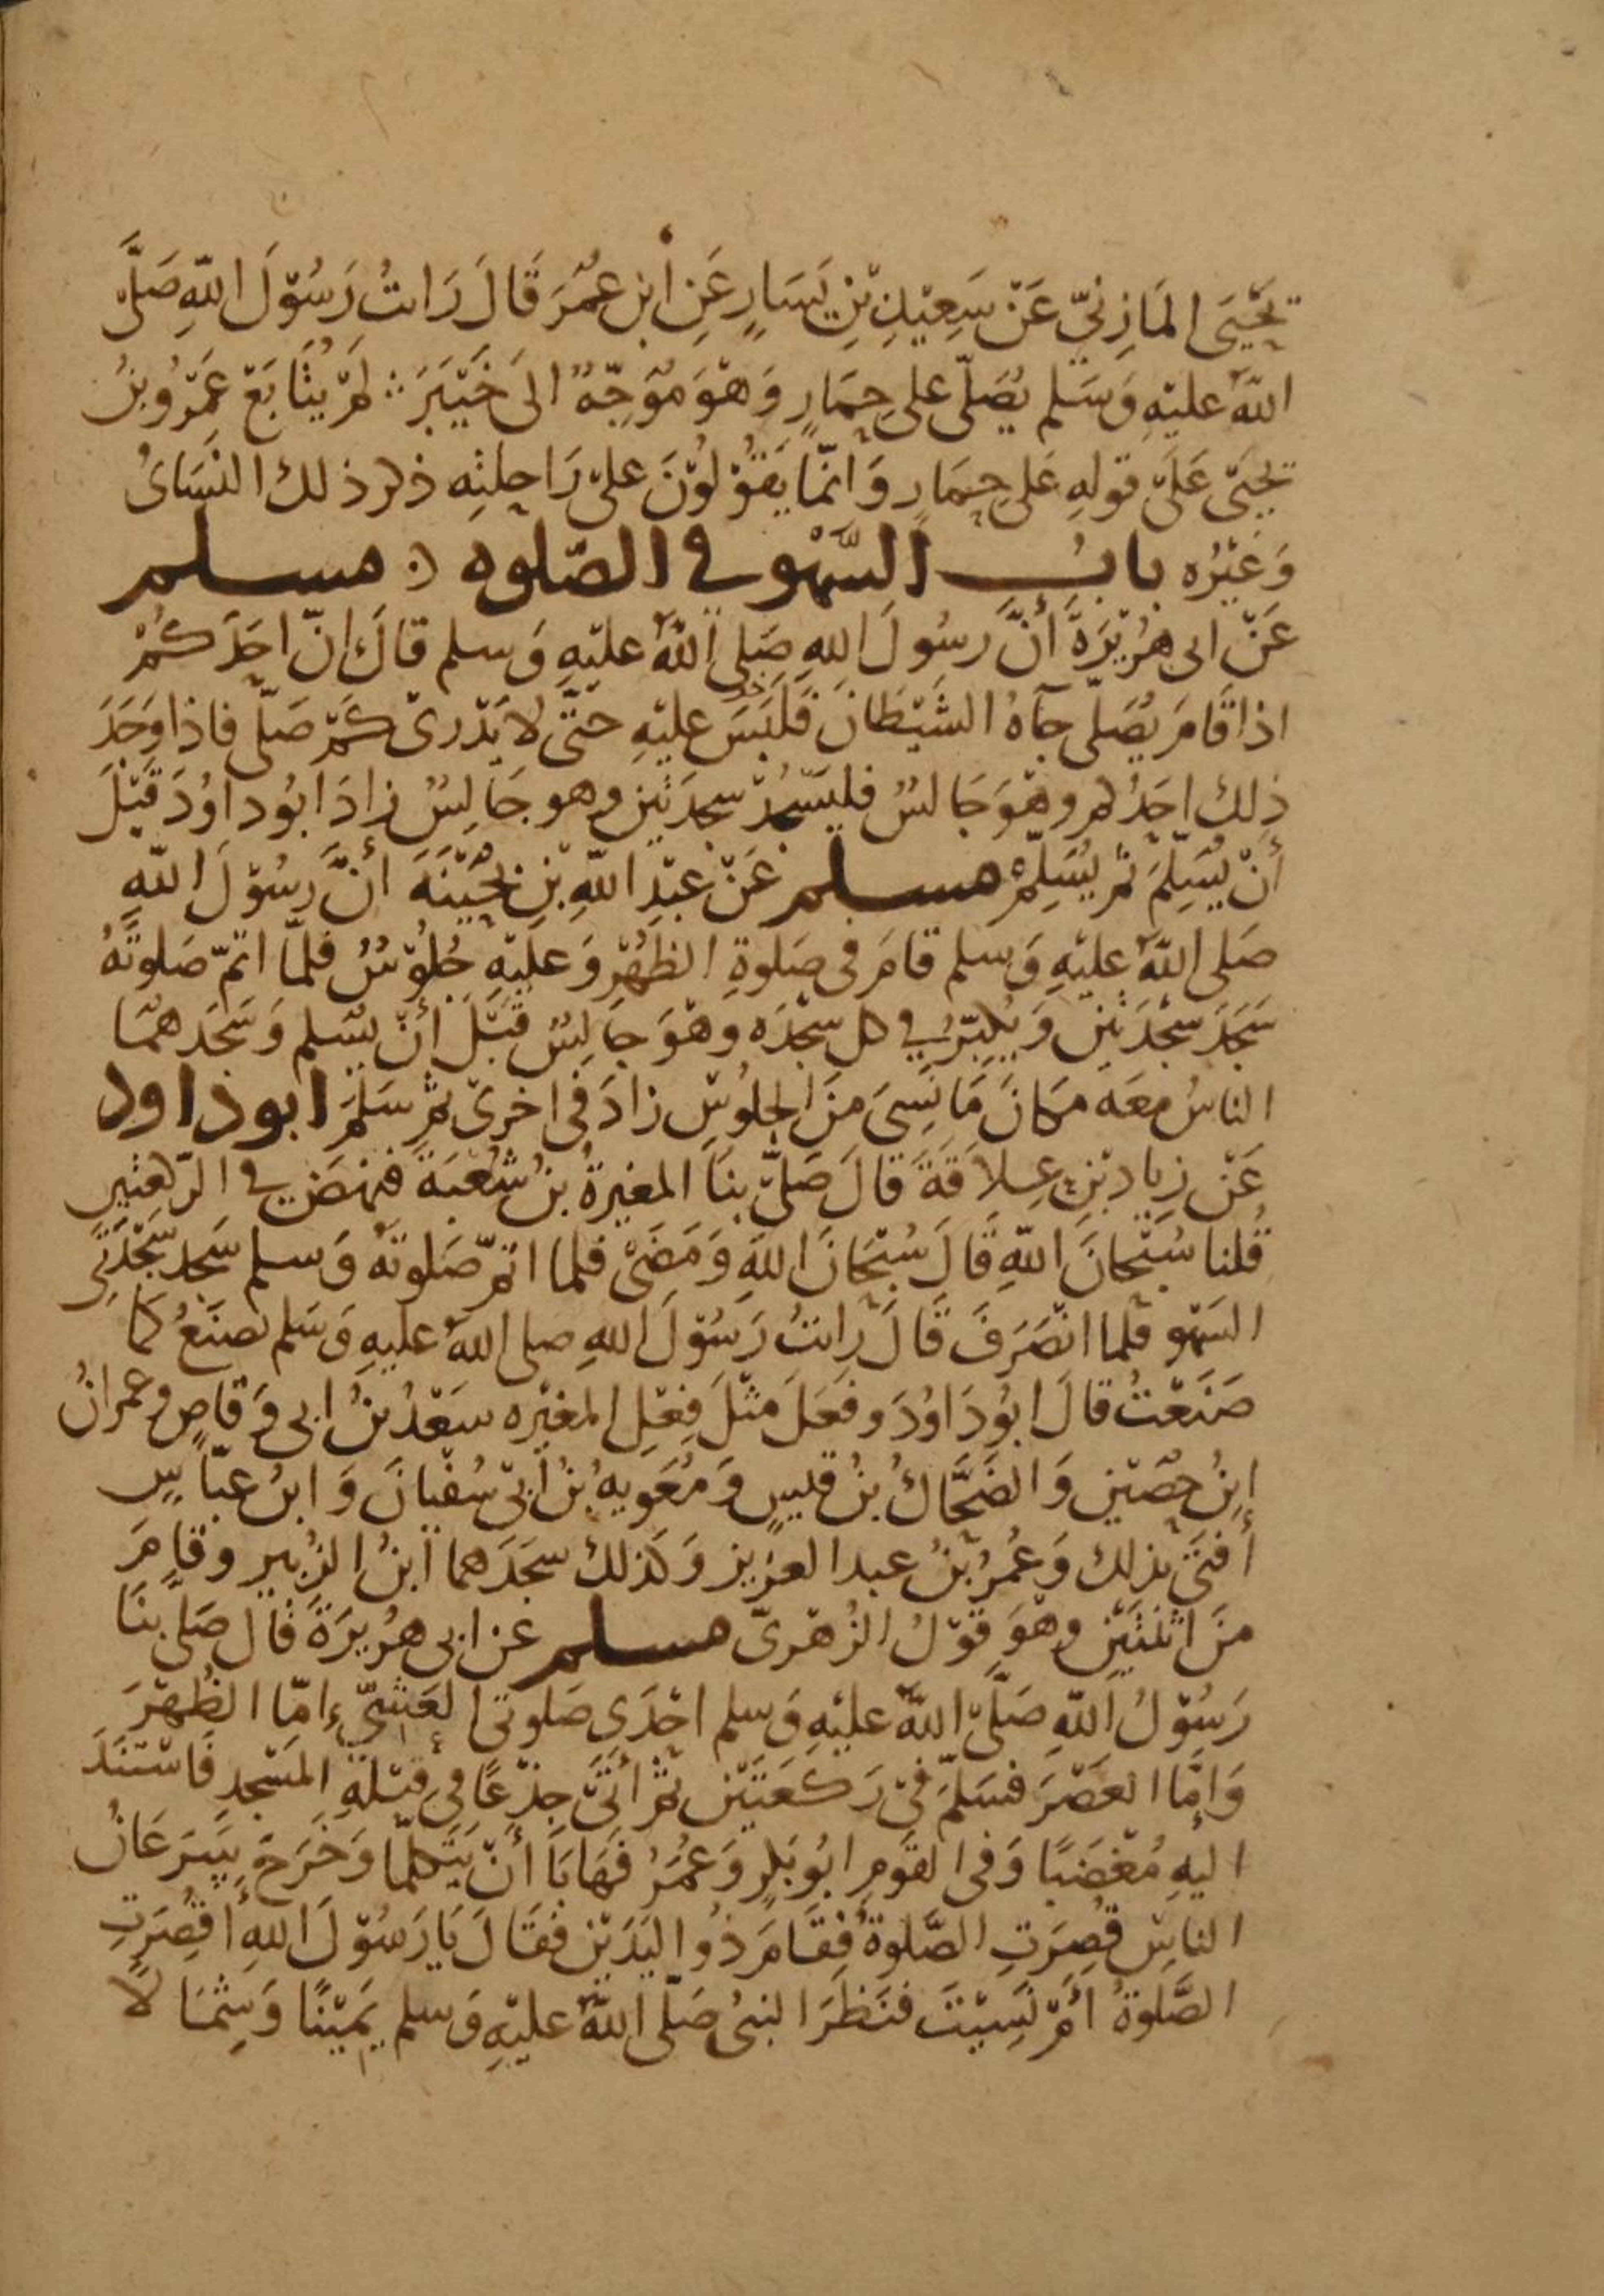 يَحْيَى المَازِنيّ عَنْ سَعِيْدِ بْنِ يَسَارٍ عَنِ ابْنِ عُمَرَ قَالَ رَايتُ رَسُوْلَ اللّهِ صَلَّى
اللّهُ عليْهِ وَسَلم يُصَلّى على حِمَارٍ وَهْوَ مُوَجِّهٌ الىَ خَيْبَرَ لَمْ يُتَابَعْ عَمْرُو بنُ
يحيَى عَلَى قولهِ عَلى حِمَارٍ وَانّمَا يَقُوْلُوْنَ علىَ رَاحِلتِه ذكر ذلك النسَاىُ
وَغَيْرُه بابُ السَّهْوِ في الصّلوه مسلم
عَنْ ابى هُرَيْرَةَ أنَّ رسُولَ اللهِ صَلى اللّهُ عليْهِ وَسلم قالَ انّ احَدَكُمْ
اذا قَامَ يُصَلّى جآهُ الشَيْطَانُ فَلَبَسَ عليْهِ حتّى لا يَدْرِىْ كَمْ صَلّى فاذا وَجَدَ
ذلِك احَدُكم وهْوَ جَالسٌ فليَسْجُدْ سجدَتَيْنِ وهو جَالِسٌ زادَ ابُو داوُدَ قَبْلَ
أنْ يُسَلِّمَ ثم يُسَلِّمْ مسلم عَنْ عَبْدِ اللّهِ بْنِ بُحَيْنَهَ أنَّ رسُوْلَ اللّهِ
صَلى اللّهُ عليْهِ وَسلم قامَ فى صَلوةِ الظهْرِ وَعليْهِ جُلُوْسٌ فلمّا اتمّ صَلوتَهُ
سَجَدَ سَجْدَتَيْنِ وَيُكبّرُ في كل سَجْدَه وهْوَ جَالِسٌ قَبْلَ أنْ يسَلم وَسَجَدَهمَا
الناسُ معَه مكانَ مَا نَسِىَ منَ الجلُوْسِ زادَ فى اخرىْ ثمّ سَلَّمَ ابو داود
عَنْ زيادِ بْنِ عِلاَقَةَ قالَ صَلّى بنَا المغيرةُ بنُ شُعْبَةَ فنهَضَ في الرّكعتيْن
قُلنا سُبْحانَ اللّهِ قَالَ سُبْحَانَ اللّهِ وَمَضَى فلما اتمّ صَلوتَهُ وَسلم سَجد سَجْدَتَيِ
السَهْو فَلما انْصَرَفَ قَالَ رايتُ رَسُوْلَ اللّهِ صلى اللّهُ عليهِ وَسَلم يَصْنَعُ كما
صَنَعْتُ قالَ ابُو دَاوُدَ وفعَلَ مثْلَ فِعْلِ المغيْره سَعْدُ بنُ ابى وَقاصٍ وعمرانُ
ابنُ حصَيْنِ وَالضَحَّاكُ بنُ قيسٍ وَمُعَويهُ بنُ أبى سُفْيانَ وَابنُ عبّاسٍ
أفتَى بذلك وَعُمَرُ بْنُ عبد العزيز وَكذلك سجَدَهما ابنُ الزُبيرِ وقامَ
منَ اثنتَيْنِ وهْوَ قَوْلُ الزُهْرىّ مسلم عن ابى هُرَيرَةَ قَال صَلّى بنَا
رَسُوْلُ اللّهِ صَلّى اللّهُ عليْهِ وَسلم احْدَى صَلوتى العَشِيِّ إمّا الظُهْرَ
وَامّا العَصْرَ فسَلّمَ فىْ رَكعَتَيْنِ ثمّ أتَى جِذعًا فى قبْلةِ المَسْجِدِ فَاسْتَنَدَ
اليهِ مُغْضَبًا وَفى القوْمِ ابُو بَكرٍ وَعُمَرُ فَهَابَا أنْ يَتَكلّمَا وَخَرَجَ سَرَعَانُ
الناسِ قُصِرَتِ الصَّلوةُ فقَامَ ذُو اليَدَيْنِ فقَالَ يَا رَسُوْلَ اللّهِ أقُصِرَتِ
الصَّلوةُ أمْ نَسِيْتَ فنَظَرَ النبىُ صَلّى اللّهُ عليْهِ وَسلم يَمِيْنًا وَشِمَالاً